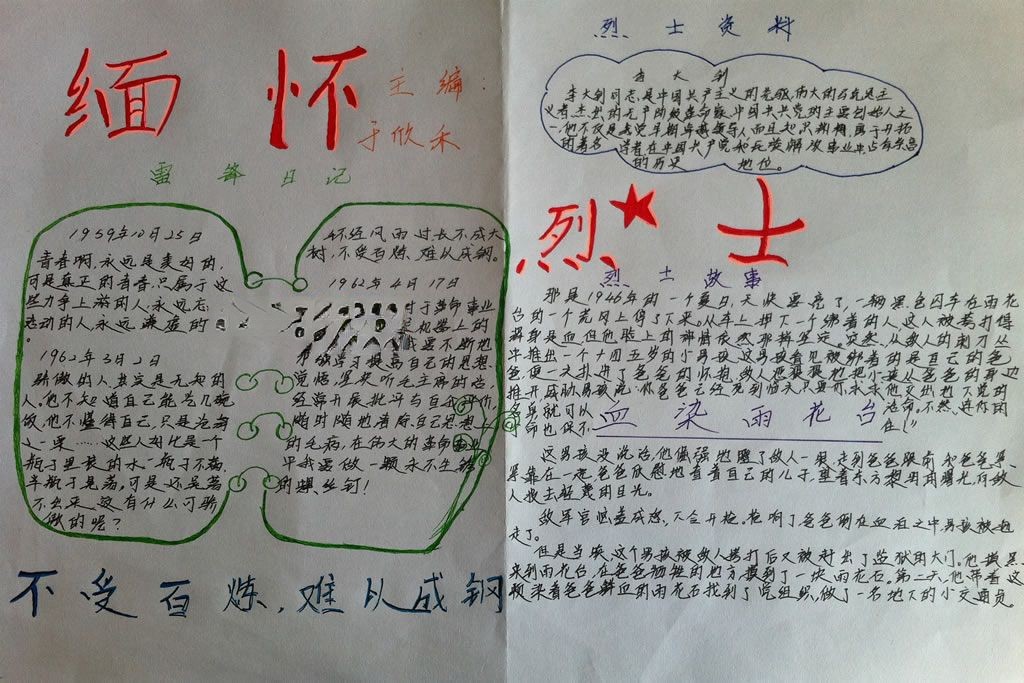 缅怀
主编:
于欣禾
雷锋日记
1959年10月25日
青春啊,永远是美好的,
可是真正的青春,只属于这
些力争上游的人,永远忘
忘动的人,永远谦虚的
1962年3月2日
骄傲的人,其实是无知的
人。他不知道自己能吃几碗
饭,他不懂得自己,只是沧海
之一粟……这些人好比是一个
瓶子里装的水,一瓶子不满,
半瓶子晃荡。可是还是荡
不出来,这有什么可骄
傲的呢?
不经风雨过,长不成大
树,不受百炼,难以成钢。
1962年4月17日
对于革命事业
机器上的
我要不断地
学习提高自己的思想
觉悟,坚决听毛主席的话,
经常开展批评与自我评价,
随时随地清除自己思想上
的毛病,在伟大的革命事业
中我要做一颗永不生锈
的螺丝钉!
不受百炼,难以成钢
烈士资料
李大钊
李大钊同志,是中国共产主义的先驱,伟大的马克思主
义者,杰出的无产阶级革命家,中国共产党的主要创始人之
一,他不仅是我党早期卓越领导人,而且是知识渊博,勇于开拓
的著名学者,在中国共产党和民族解放事业中,占有崇高
的历史地位。
烈★士
烈士故事
那是1946年的一个夏日,天快要亮了,一辆黑色囚车在雨花
台的一个荒岗上停了下来。从车上押下一个绑着的人,这人被毒打得
浑身是血,但他脸上的神情依然那样坚定。突然,从敌人的刺刀丛
中推出一个十四五岁的小男孩,这男孩看见被绑着的是自己的爸
爸,便一头扑进了爸爸的怀抱,敌人恶狠狠地把小孩从爸爸的身边
推开,威胁男孩说:你爸爸已经死到临头,只要你求求他交出地下党的
名单就可以 活命。不然,连你的
命也保不 住!”
血染雨花台
这男孩没说话,他倔强地瞪了敌人一眼,走到爸爸跟前,和爸爸紧
紧靠在一起,爸爸欣慰地看着自己的儿子,望着东方黎明的曙光,向敌
人投去轻蔑的目光。
敌军官恼羞成怒,下令开枪,枪响了,爸爸倒在血泊之中,男孩被赶
走了。
但是当晚,这个男孩被敌人毒打后又被赶出了监狱的大门。他摸黑
来到雨花台,在爸爸牺牲的地方摸到了一块雨花石。第二天,他带着这
颗染着爸爸鲜血的雨花石找到了党组织,做了一名地下的小交通员。